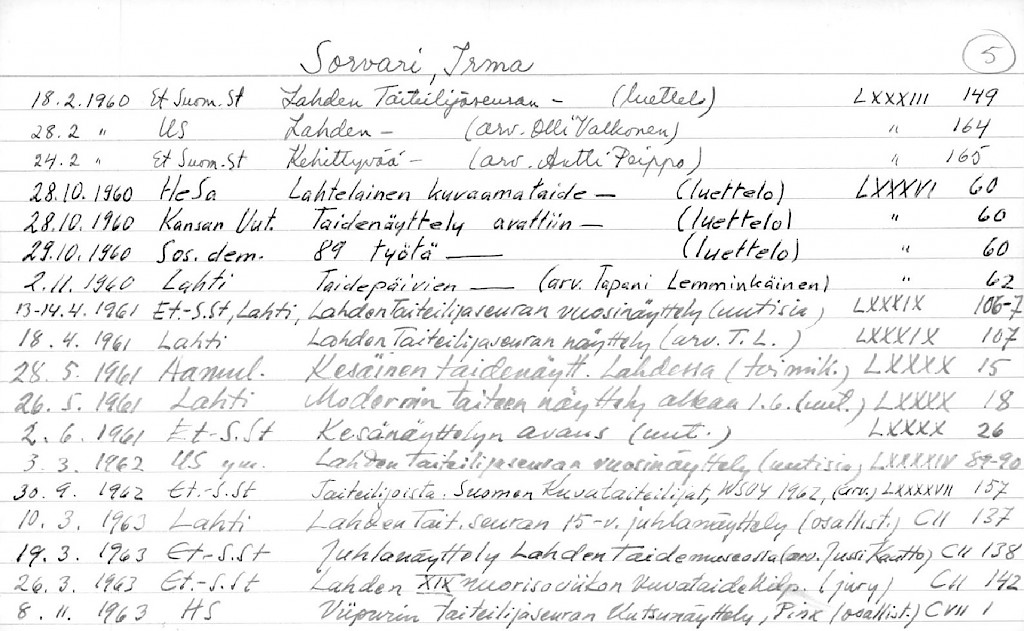 Sorvari, Irma 5
18.2.1960 Et Suom. St Lahden Taiteilijaseuran - (luettelo) LXXXIII 149
28.2 " US Lahden - (arv. Olli Valkonen) " 164
24.2 " Et Suom. St Kehittyvää - (arv. Antti Peippo) " 165
28.10.1960 HeSa Lahtelainen kuvaamataide - (luettelo) LXXXVI 60
28.10.1960 Kansan Uut. Taidenäyttely avattiin - (luettelo) " 60
29.10.1960 Sos. dem. 89 työtä - (luettelo) " 60
2.11.1960 Lahti Taidepäivien - (arv. Tapani Lemminkäinen) " 62
13-14.4.1961 Et.-S.St, Lahti, Lahden Taiteilijaseuran vuosinäyttely (uutisia) LXXXIX 106-7
18.4.1961 Lahti Lahden Taiteilijaseuran näyttely (arv. T. L.) LXXXIX 107
28.5.1961 Aamul. Kesäinen taidenäytt. Lahdessa (toimik.) LXXXX 15
26.5.1961 Lahti Modernin taiteen näyttely alkaa 1.6. (uut.) LXXXX 18
2.6.1961 Et-S.St Kesänäyttelyn avaus (uut.) LXXXX 26
3.3.1962 US ym. Lahden Taiteilijaseuran vuosinäyttely (uutisia) LXXXXIV 89-90
30.9.1962 Et.-S.St Taiteilijoista. Suomen Kuvataiteilijat, WSOY 1962, (arv.) LXXXXVII 157
10.3.1963 Lahti Lahden Tait.seuran 15-v. juhlanäyttely (osallist.) CII 137
19.3.1963 Et-S.St Juhlanäyttely Lahden taidemuseossa (arv. Jussi Kautto) CII 138
26.3.1963 Et.-S.St Lahden XIX nuorisoviikon kuvataidekilp. (jury) CII 142
8.11.1963 HS Viipurin Taiteilijaseuran Kutsunäyttely, Pinx (osallist.) CVII 1